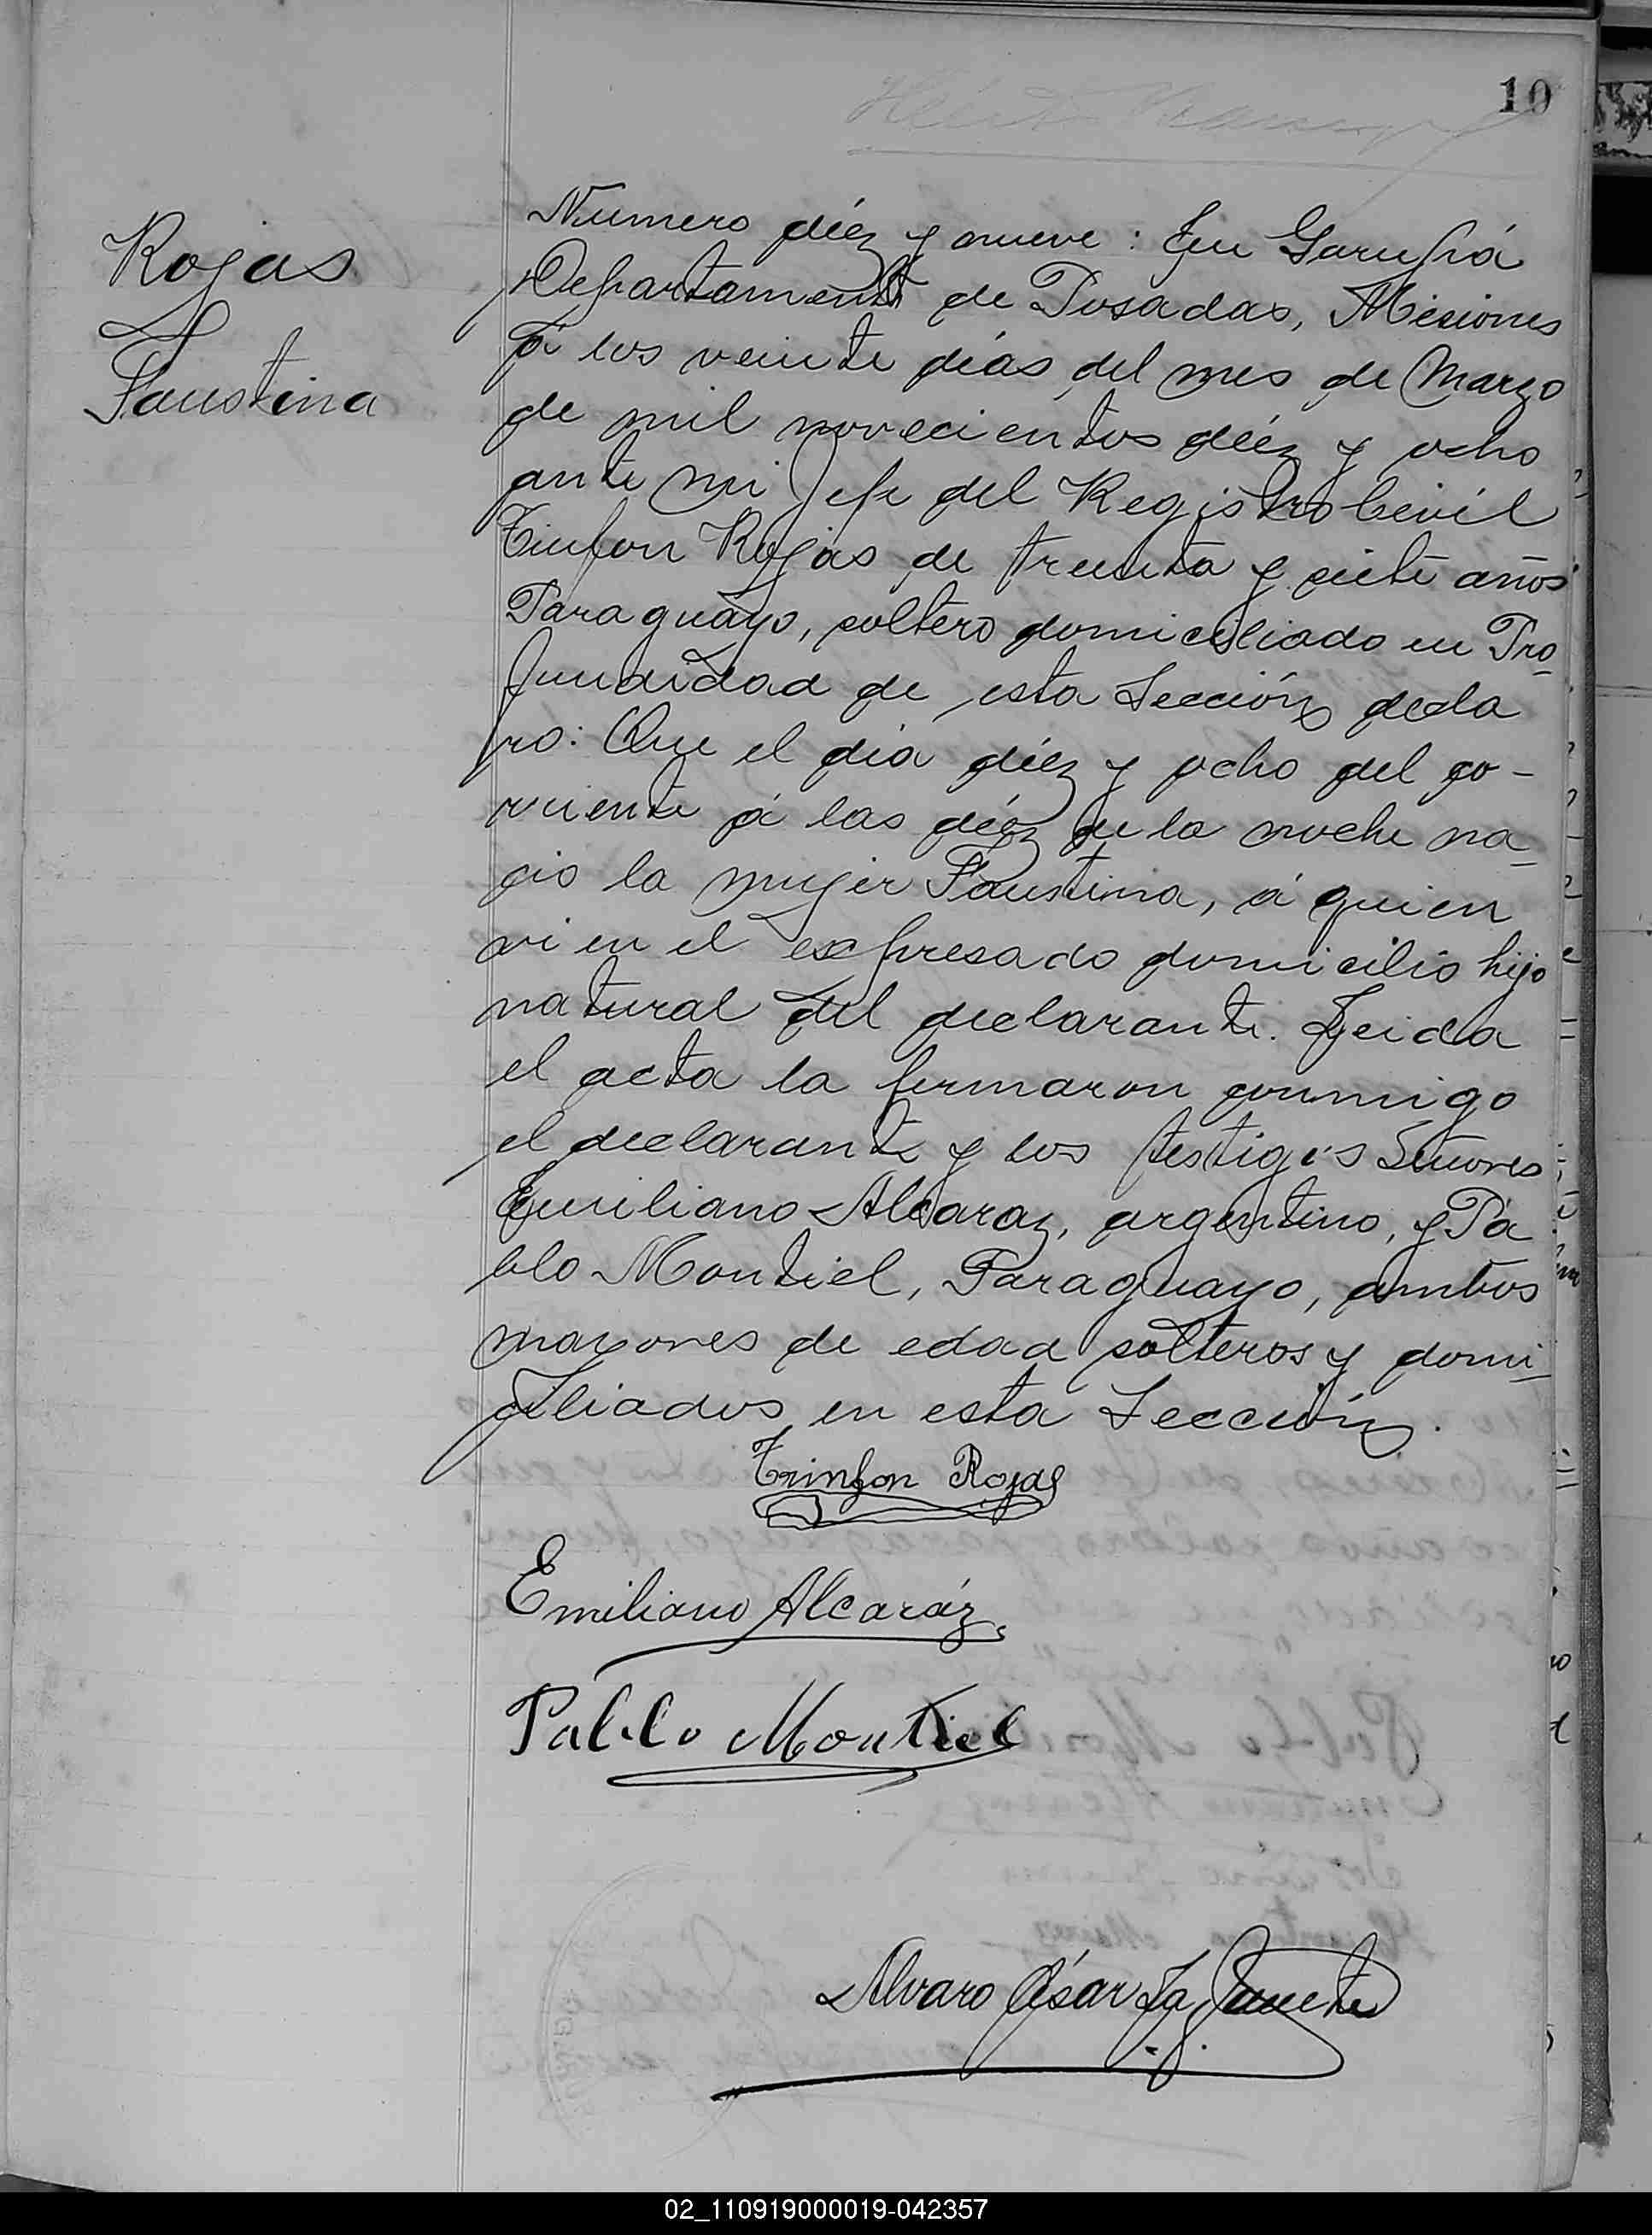 10
Rojas
Faustina
Numero diéz y nueve: En Garupá
Departamento de Posadas, Misiones
á los veinte dias del mes de Marzo
de mil novecientos diéz y ocho
ante mi Jefe del Registro Civil
Trinfon Rojas de treinta y siete años
Paraguayo, soltero domiciliado en Pro
fundidad de esta Sección decla
ro: Que el dia diéz y ocho del co-
rriente á las diéz de la noche na
cio la mujer Faustina, á quien
vi en el expresado domicilio hijo
natural del declarante. Leida
el acta la firmaron conmigo
el declarante y los testigos Señores
Emiliano Alcaraz, argentino, y Pa
blo Montiel, Paraguayo, ambos
mayores de edad solteros y domi
ciliados en esta Sección.
Trinfon Rojas
Emiliano Alcaráz
Pablo Montiel
Alvaro César La Fuente
02_110919000019-042357